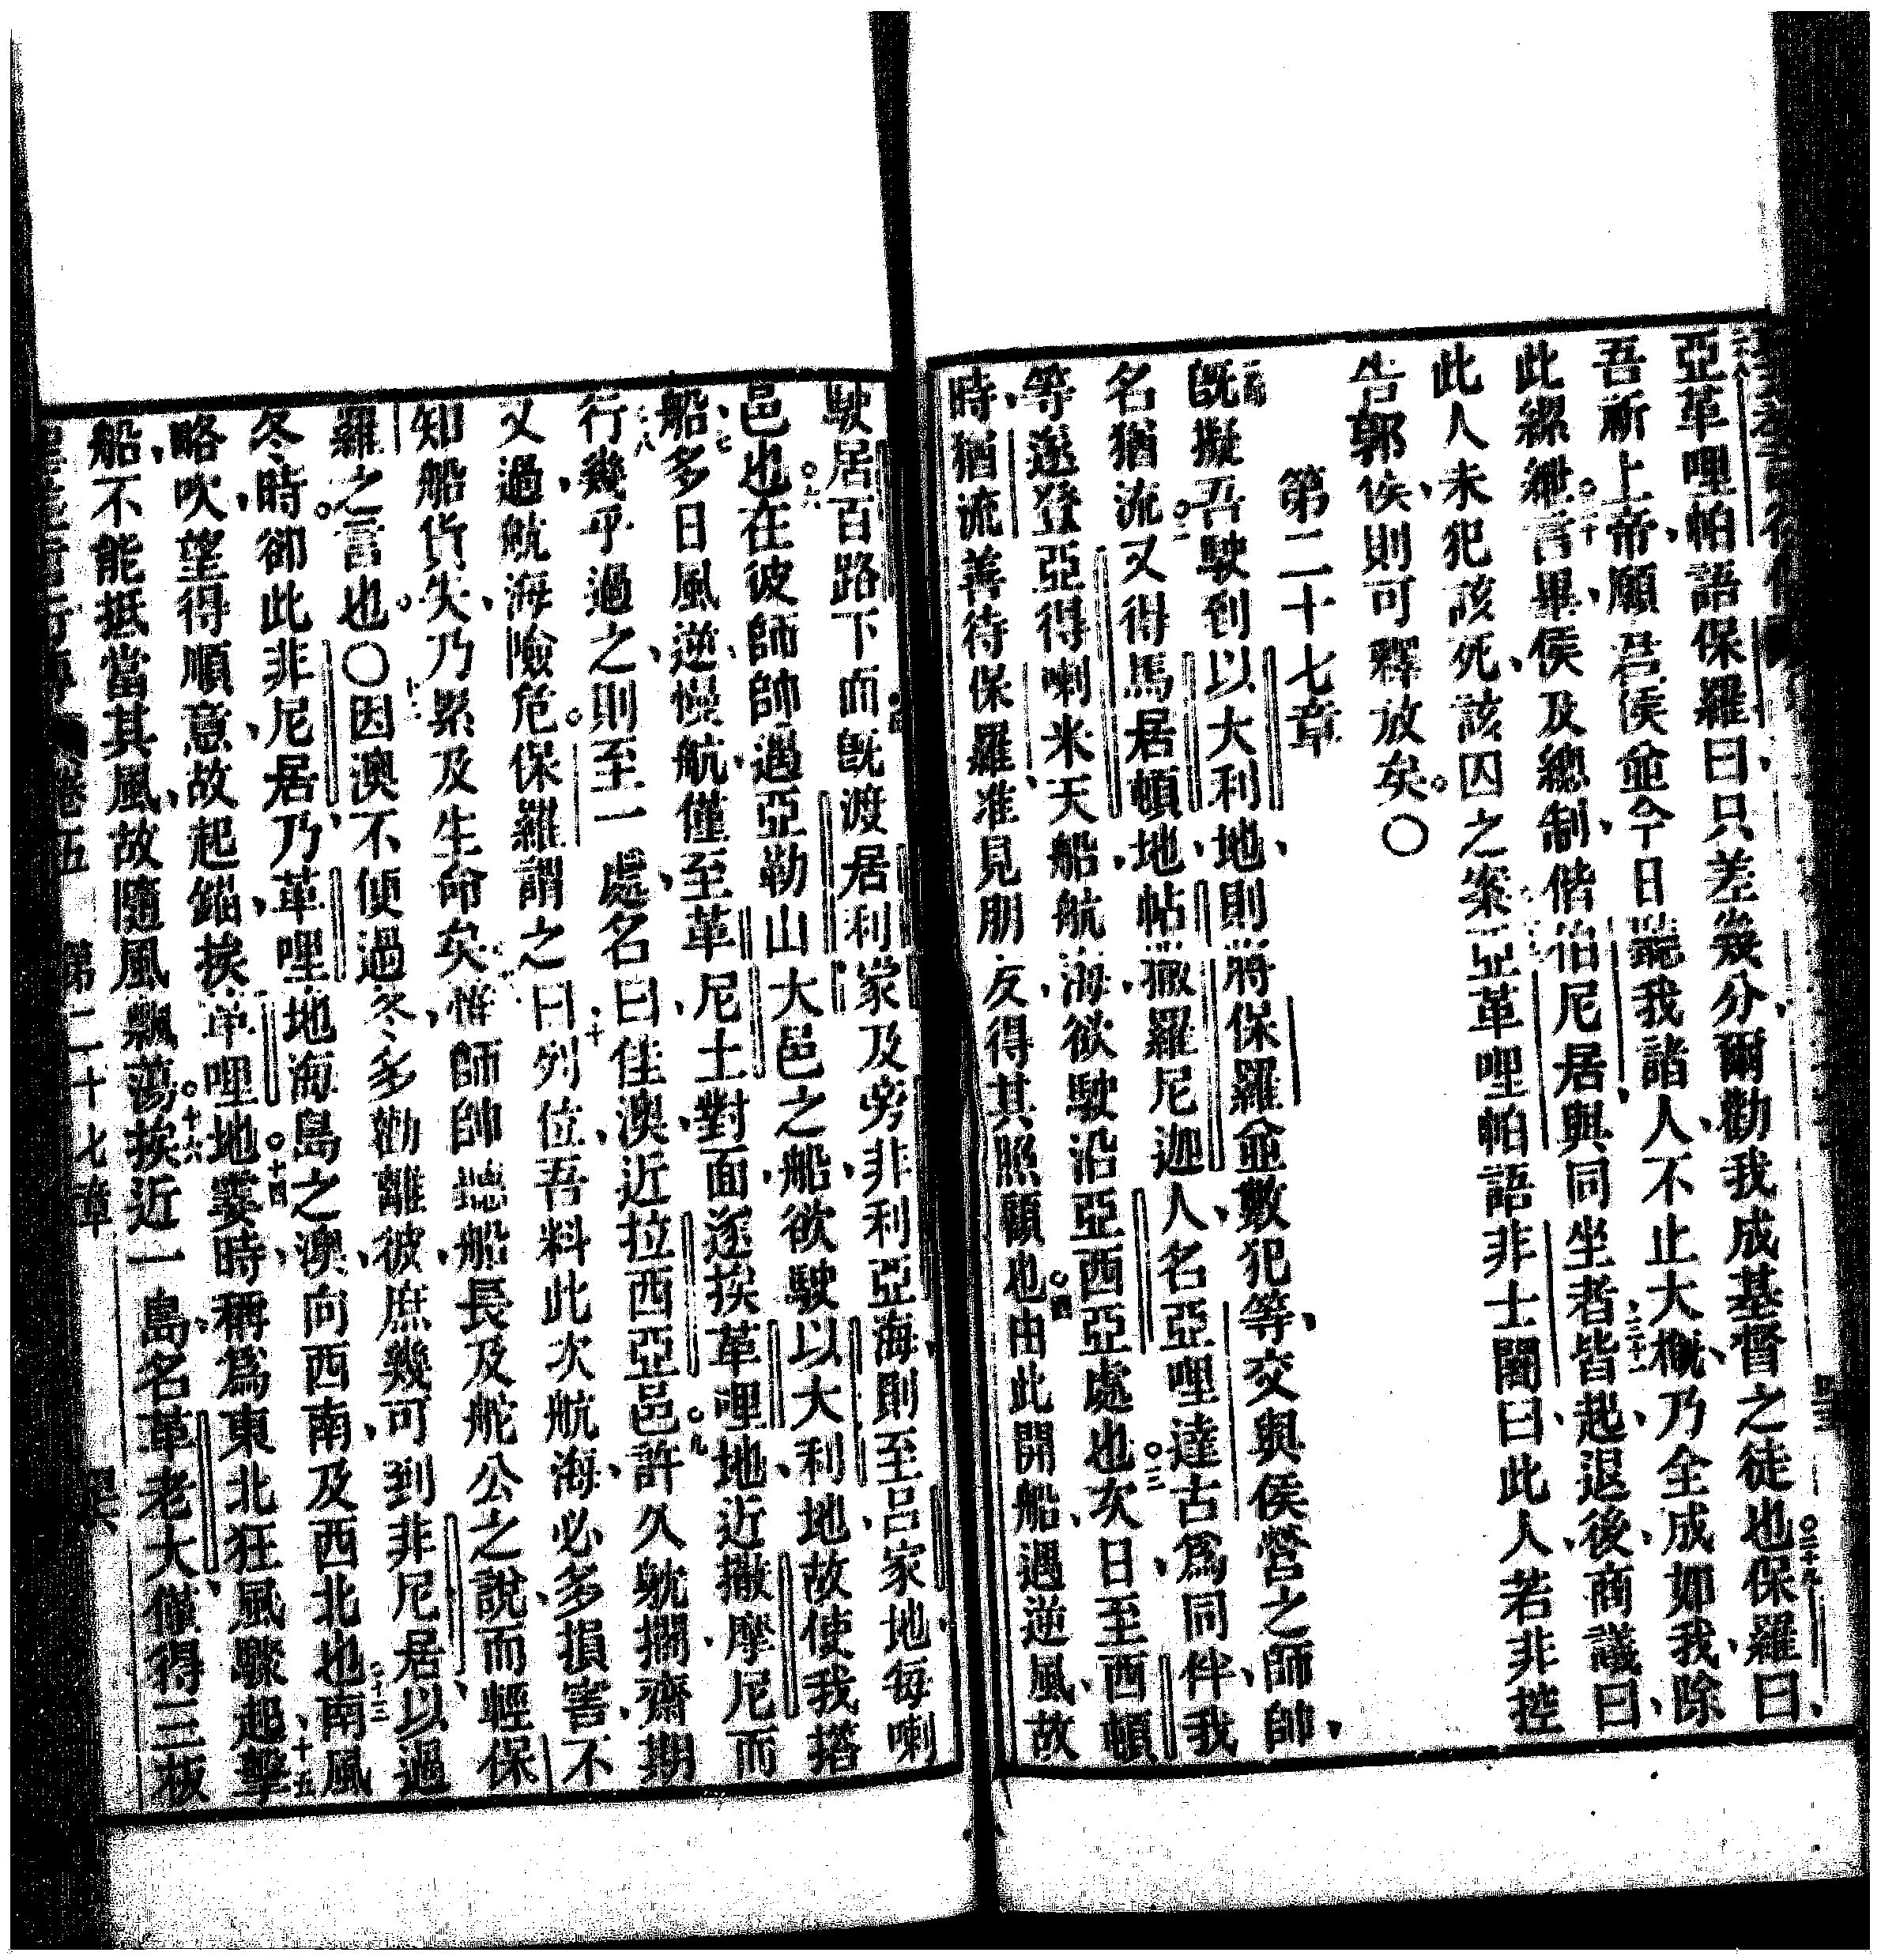 亞革哩帕語保羅曰只差幾分爾勸我成基督之徒也○二十九保羅曰
吾祈上帝願君侯並今日聽我諸人不止大概乃全成如我除
此縲絏○三十言畢侯及總制偕伯尼居與同坐者皆起三十一退後商議曰
此人未犯該死該囚之案亞革哩帕語非士闍曰此人若非控
告郭侯則可釋放矣○
第二十七章
既擬吾駛到以大利地則將保羅並數犯等交與侯營之師帥
名猶流○二又得馬居頓地帖撒羅尼迦人名亞哩達古為同伴我
等遂登亞得喇米天船航海欲駛沿亞西亞處也○三次日至西頓
時猶流善待保羅准見朋友得其照顧也○四由此開船遇逆風故
駛居百路下而既渡居利家及旁非利亞海則至呂家地每喇
邑也○六在彼師帥遇亞勒山大邑之船欲駛以大利地故使我搭
船七多日風逆慢航僅至革尼土對面遂挨革哩地近撒摩尼而
行八幾乎過之則至一處名曰佳澳近拉西亞邑○九許久躭擱齋期
又過航海險危保羅謂之曰十列位吾料此次航海必多損害不
知船貨失乃累及生命矣惟師帥聽船長及舵公之說而輕保
羅之言也○因澳不便過冬多勸離彼庶幾可到非尼居以過
冬時卻此非尼居乃革哩地海島之澳向西南及西北也○十三南風
略吹望得順意故起錨挨革哩地○十四霎時稱為東北狂風驟起擊十五
船不能抵當其風故隨風飄蕩○十六挨近一島名革老大僅得三板
卷五 第二十七章